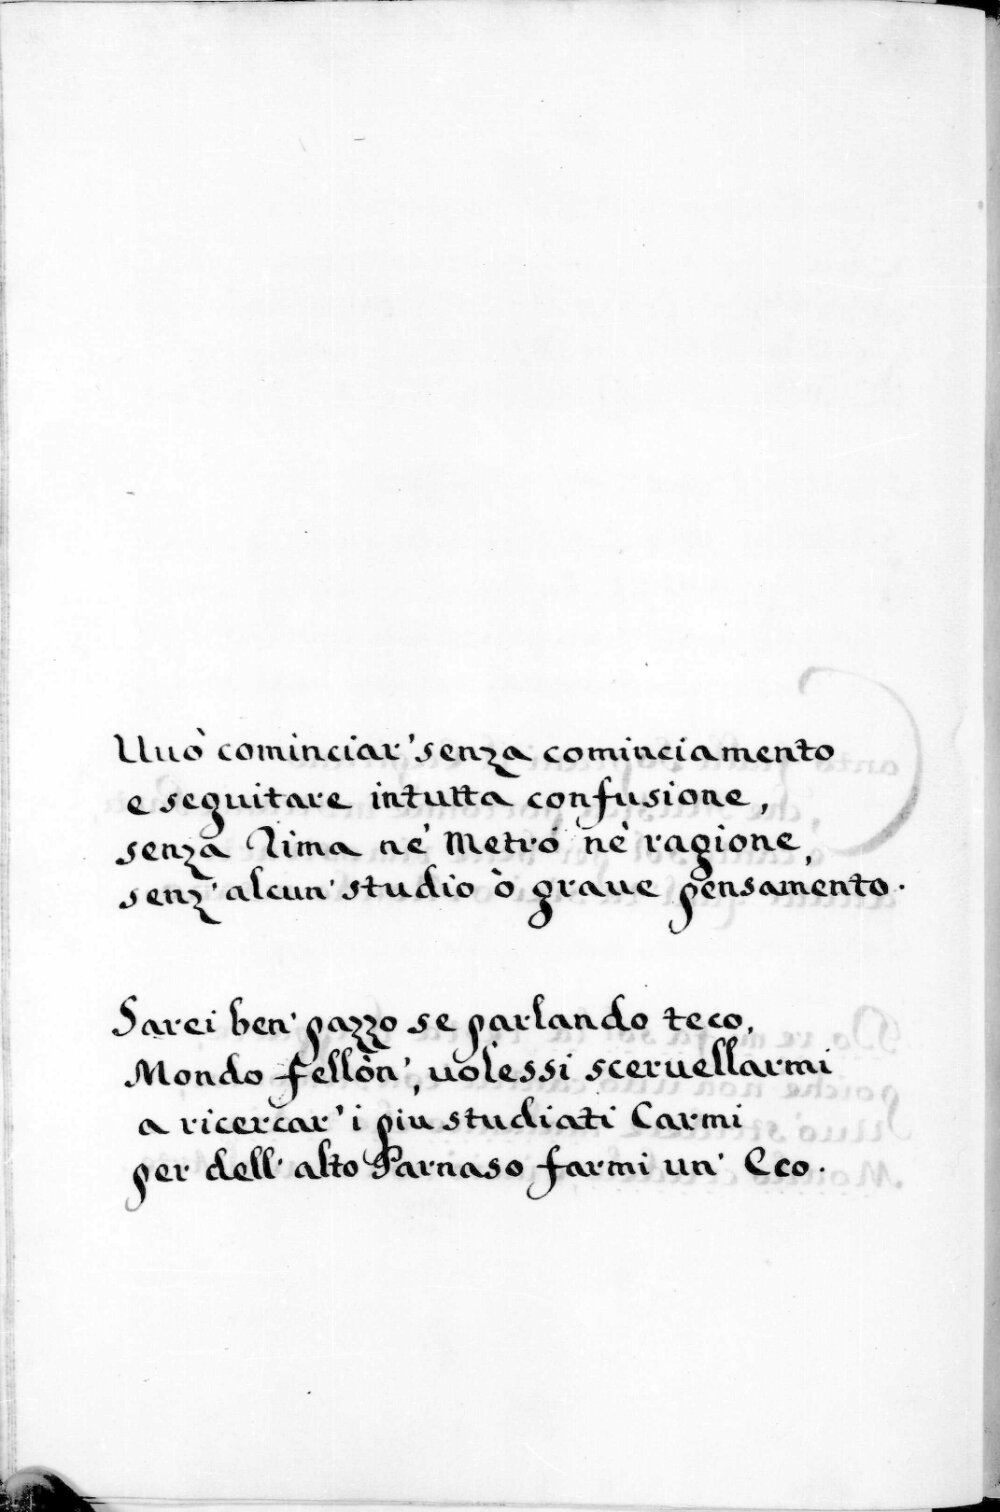 Uuò cominciar' senza cominciamento
e seguitare in tutta confusione,
senza Rima nè Metro nè ragione,
senz' alcun' studio ò graue pensamento.
Sarei ben' pazzo se parlando teco,
Mondo fellòn', uolessi sceruellarmi
a ricercar' i più studiati Carmi
per dell' alto Parnaso farmi un' Eco.